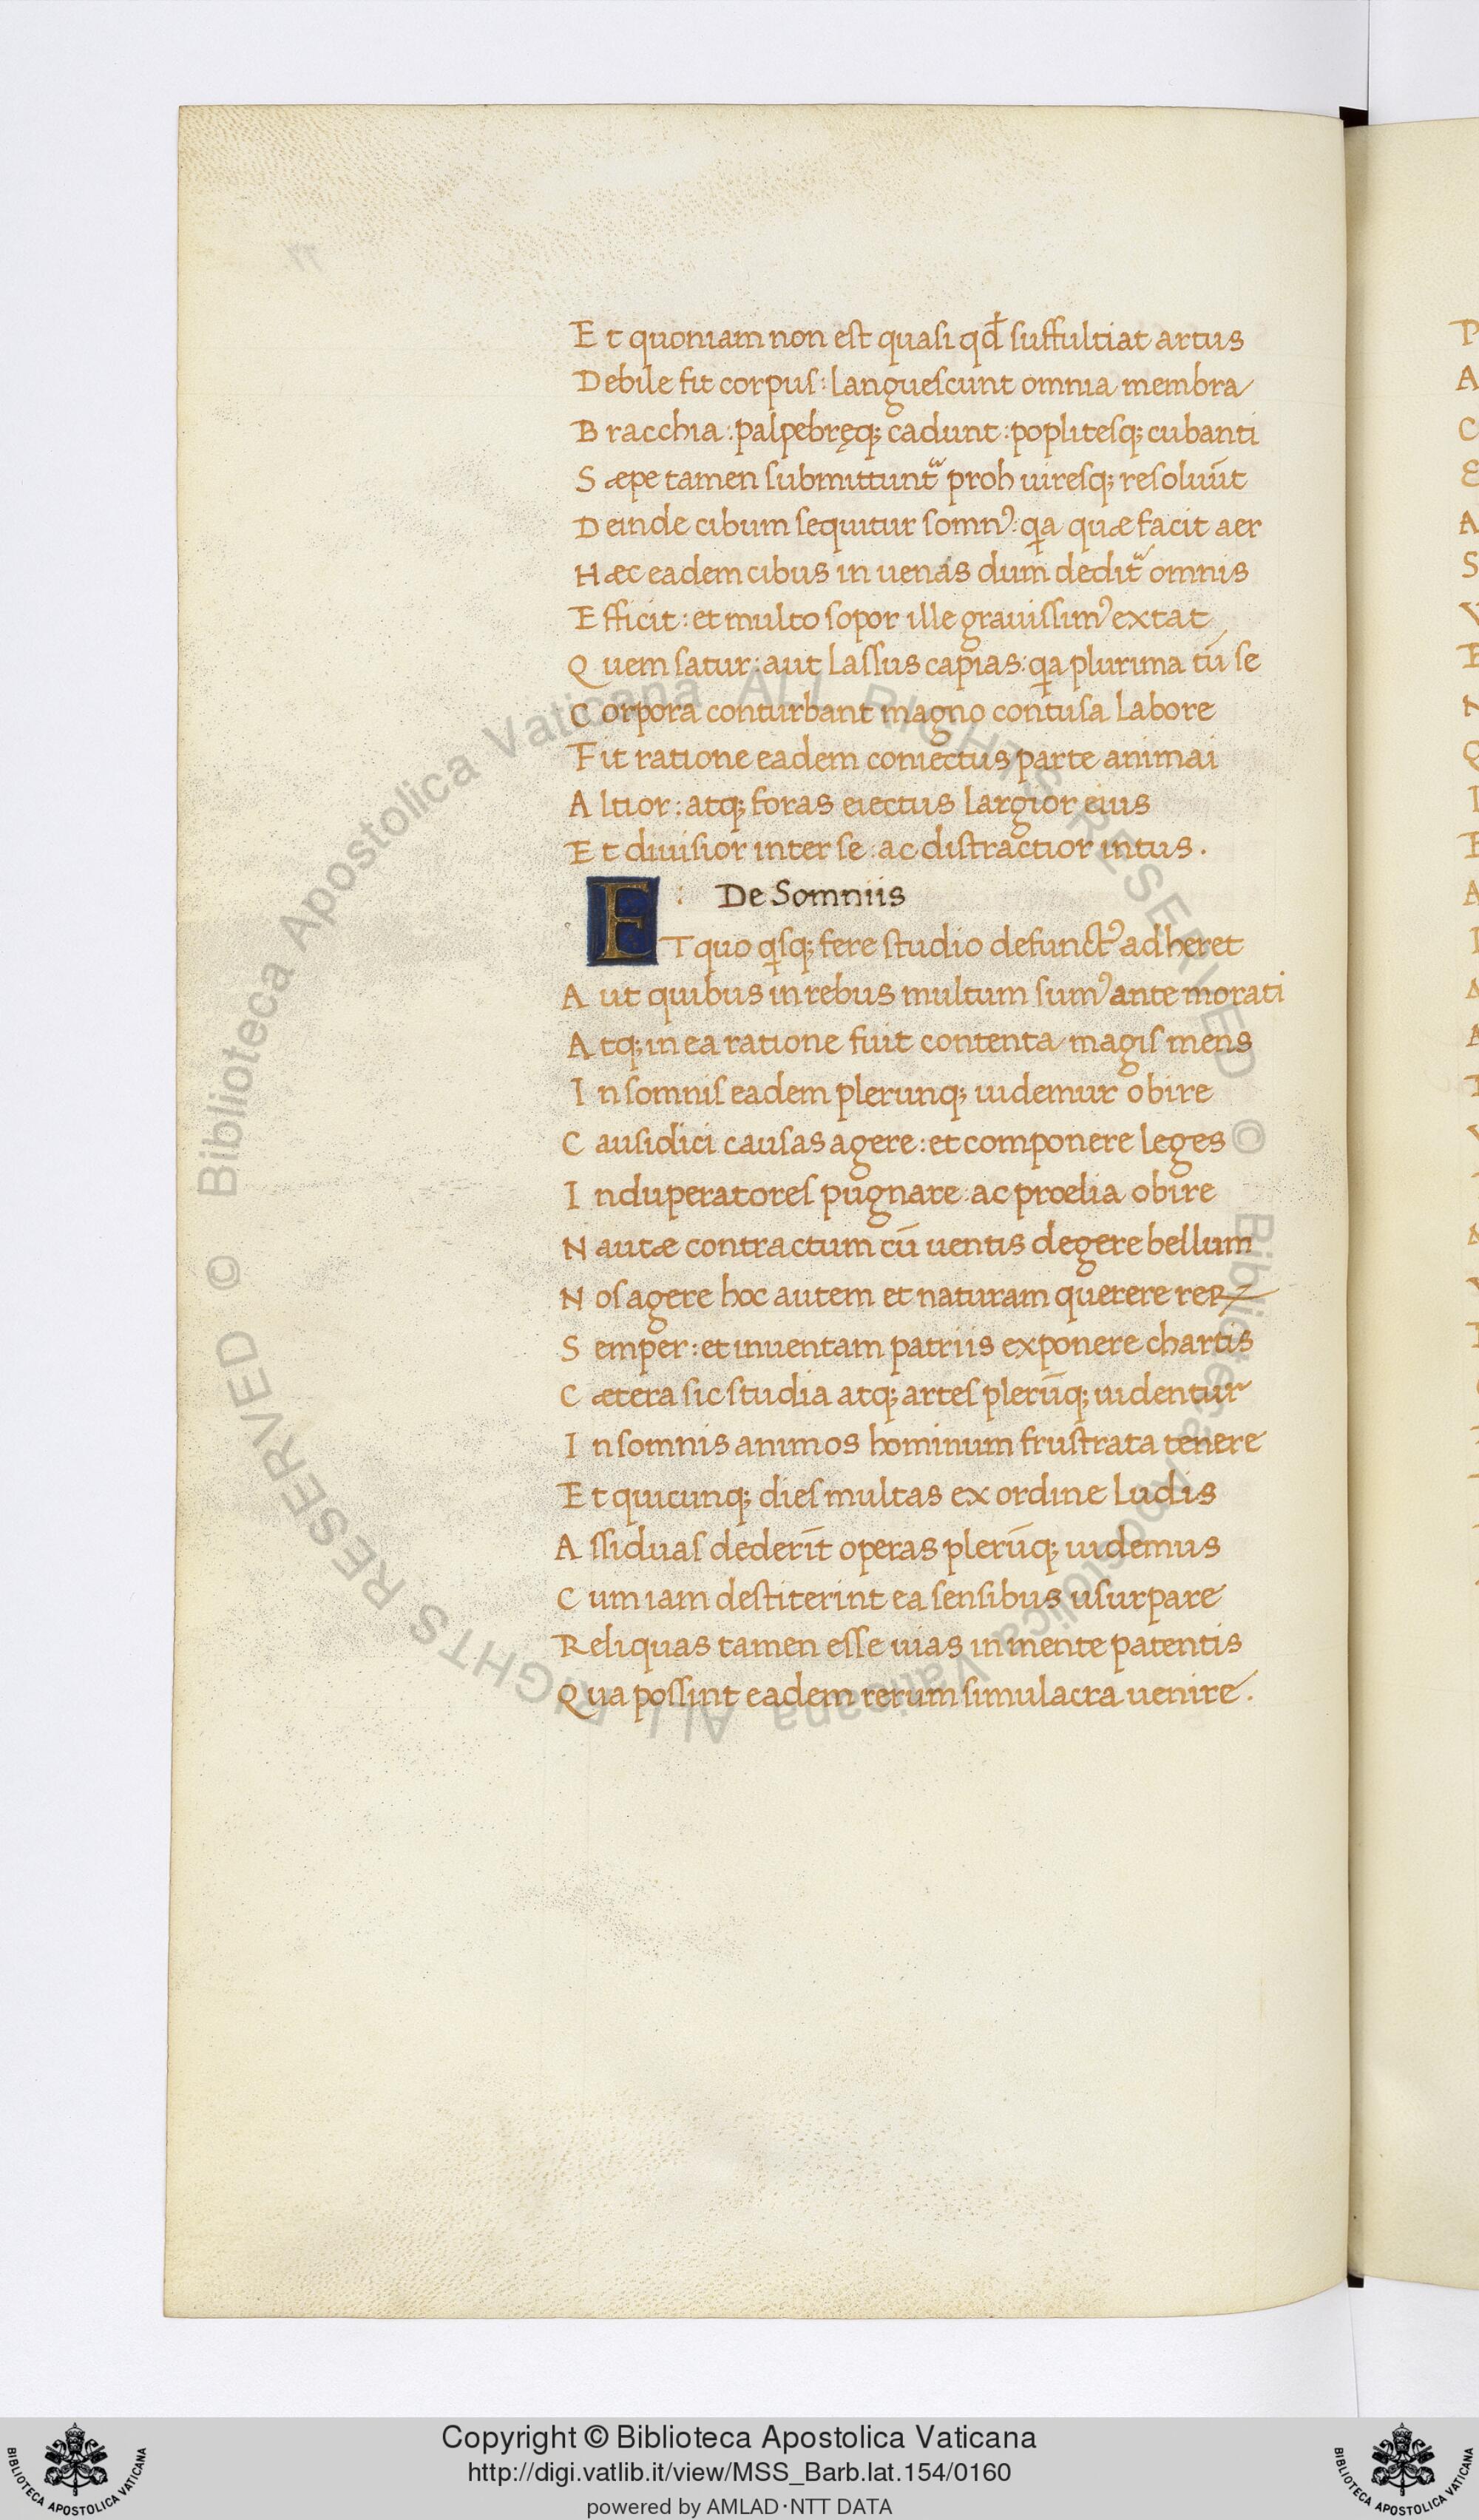 Et quoniam non est quasi qđ suffultiat artus
Debile fit corpus: languescunt omnia membra
Bracchia: palpebręq; cadunt: poplitesq; cubanti
Sæpe tamen submittunt᷑ proh uiresq; resoluūt
Deinde cibum sequitur somnꝰ: qa quæ facit aer
Hæc eadem cibus in uenas dum dedit᷑ omnis
Efficit: et multo sopor ille grauissimꝰ extat
Quem satur: aut lassus capias: qa plurima tū se
Corpora conturbant magno contusa labore
Fit ratione eadem coniectus parte animai
Altior: atq; foras eiectus largior eius
Et diuisior inter se: ac distractior intus.
De Somniis
ET quo qsq; fere studio defunctꝰ adheret
Aut quibus in rebus multum sumꝰ ante morati
Atq; in ea ratione fuit contenta magis mens
In somnis eadem plerunq; uidemur obire
Causidici causas agere: et componere leges
Induperatores pugnare: ac proelia obire
Nautæ contractum cū uentis degere bellum
Nos agere hoc autem et naturam querere reꝝ
Semper: et inuentam patriis exponere chartis
Cætera sic studia atq; artes plerūq; uidentur
In somnis animos hominum frustrata tenere
Et quicunq; dies multas ex ordine ludis
Assiduas dederīt operas plerūq; uidemus
Cum iam destiterint ea sensibus usurpare
Reliquas tamen esse uias in mente patentis
Qua possint eadem rerum simulacra uenire.
© Biblioteca Apostolica Vaticana ALL RIGHTS RESERVED © Biblioteca Apostolica Vaticana ALL RIGHTS RESERVED
Copyright © Biblioteca Apostolica Vaticana
http://digi.vatlib.it/view/MSS_Barb.lat.154/0160
powered by AMLAD·NTT DATA
BIBLIOTECA APOSTOLICA VATICANA
BIBLIOTECA APOSTOLICA VATICANA